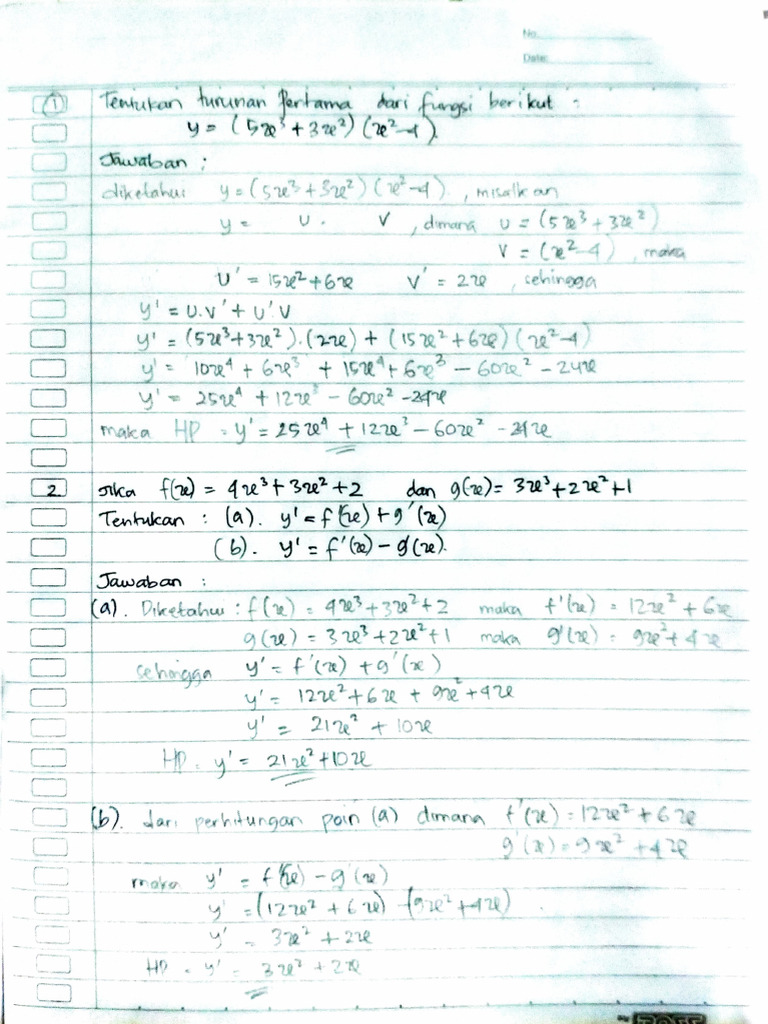 No.
Date:
① Tentukan turunan Pertama dari fungsi berikut :
y = (5x³ + 3x²) (x² - 4).
Jawaban :
diketahui y = (5x³ + 3x²) (x² - 4) , misalkan
y = U . V , dimana U = (5x³ + 3x²)
V = (x² - 4) , maka
U' = 15x² + 6x V' = 2x , sehingga
y' = U.V' + U'.V
y' = (5x³ + 3x²).(2x) + (15x² + 6x) (x² - 4)
y' = 10x⁴ + 6x³ + 15x⁴ + 6x³ - 60x² - 24x
y' = 25x⁴ + 12x³ - 60x² - 24x
maka HP = y' = 25x⁴ + 12x³ - 60x² - 24x
2 Jika f(x) = 4x³ + 3x² + 2 dan g(x) = 3x³ + 2x² + 1
Tentukan : (a). y' = f'(x) + g'(x)
(b). y' = f'(x) - g'(x).
Jawaban :
(a). Diketahui : f(x) = 4x³ + 3x² + 2 maka f'(x) = 12x² + 6x
g(x) = 3x³ + 2x² + 1 maka g'(x) = 9x² + 4x
sehingga y' = f'(x) + g'(x)
y' = 12x² + 6x + 9x² + 4x
y' = 21x² + 10x
HP = y' = 21x² + 10x
(b). dari perhitungan poin (a) dimana f'(x) = 12x² + 6x
g'(x) = 9x² + 4x
maka y' = f'(x) - g'(x)
y' = (12x² + 6x) - (9x² + 4x)
y' = 3x² + 2x
HP = y' = 3x² + 2x